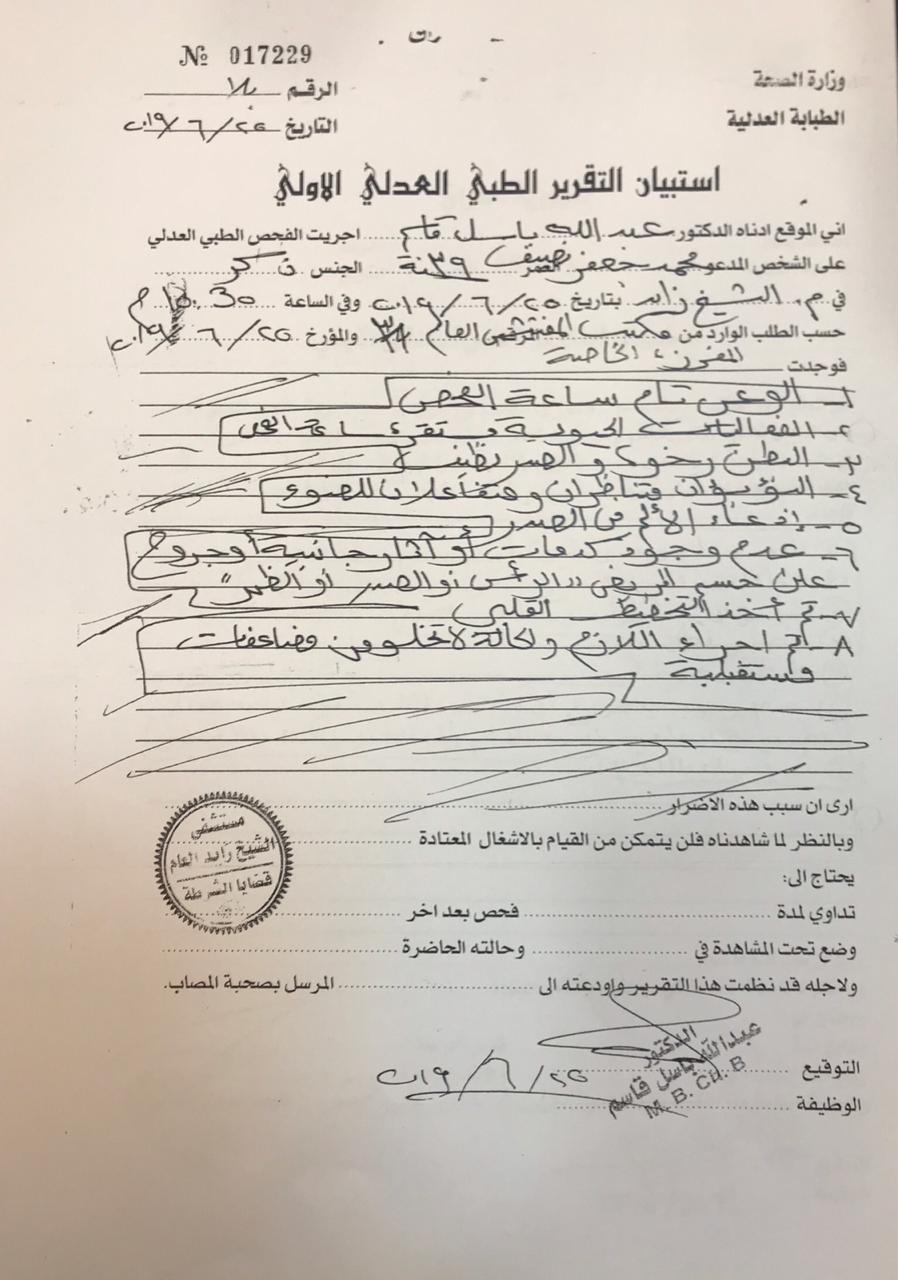 № 017229
وزارة الصحة
الرقم بلا
الطبابة العدلية
التاريخ ٢٠١٩/٦/٢٥
استبيان التقرير الطبي العدلي الاولي
اني الموقع ادناه الدكتور عبد الله باسل قاسم اجريت الفحص الطبي العدلي
على الشخص المدعو محمد جعفر نصيف العمر ٣٩ سنة الجنس ذكر
في م. الشيخ زايد بتاريخ ٢٠١٩/٦/٢٥ وفي الساعة 30 م
حسب الطلب الوارد من مكتب المفتش العام والمؤرخ ٢٠١٩/٦/٢٥
فوجدت الخاصة
١- الوعي تام ساعة الفحص
٢- الفعاليات الحيوية مستقرة الفحص
٣- البطن رخوة والصدر نظيف
٤- البؤبؤان متناظران ومتفاعلان للضوء
٥- إدعاء الألم في الصدر
٦- عدم وجود كدمات أو آثار جانبية أو جروح
على جسم المريض "الرأس أو الصدر أو الظهر"
٧- تم أخذ التخطيط القلبي
٨- تم اجراء اللازم والحالة لا تخلو من مضاعفات
مستقبلية
ارى ان سبب هذه الاضرار
وبالنظر لما شاهدناه فلن يتمكن من القيام بالاشغال المعتادة
يحتاج الى:
تداوي لمدة فحص بعد اخر
وضع تحت المشاهدة في وحالته الحاضرة
ولاجله قد نظمت هذا التقرير واودعته الى المرسل بصحبة المصاب.
مستشفى
الشيخ زايد العام
قضايا الشرطة
الدكتور
عبدالله باسل قاسم
M. B. CH. B
التوقيع ٢٠١٩/٦/٢٥
الوظيفة